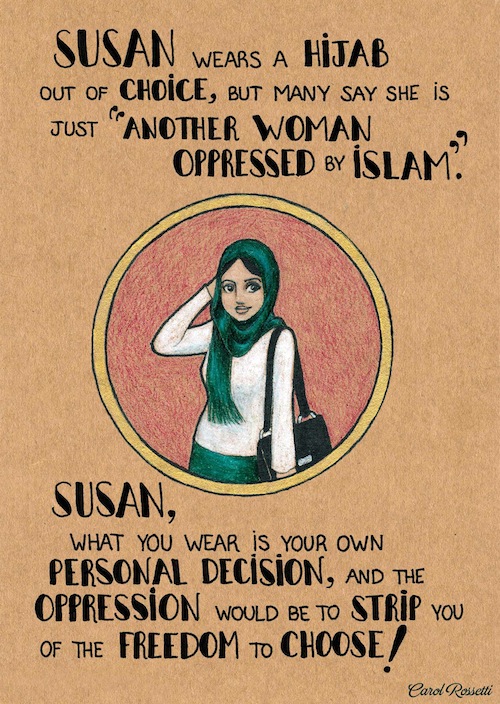 SUSAN WEARS A HIJAB
OUT OF CHOICE, BUT MANY SAY SHE IS
JUST "ANOTHER WOMAN
OPPRESSED BY ISLAM".
SUSAN,
WHAT YOU WEAR IS YOUR OWN
PERSONAL DECISION, AND THE
OPPRESSION WOULD BE TO STRIP YOU
OF THE FREEDOM TO CHOOSE!
Carol Rossetti